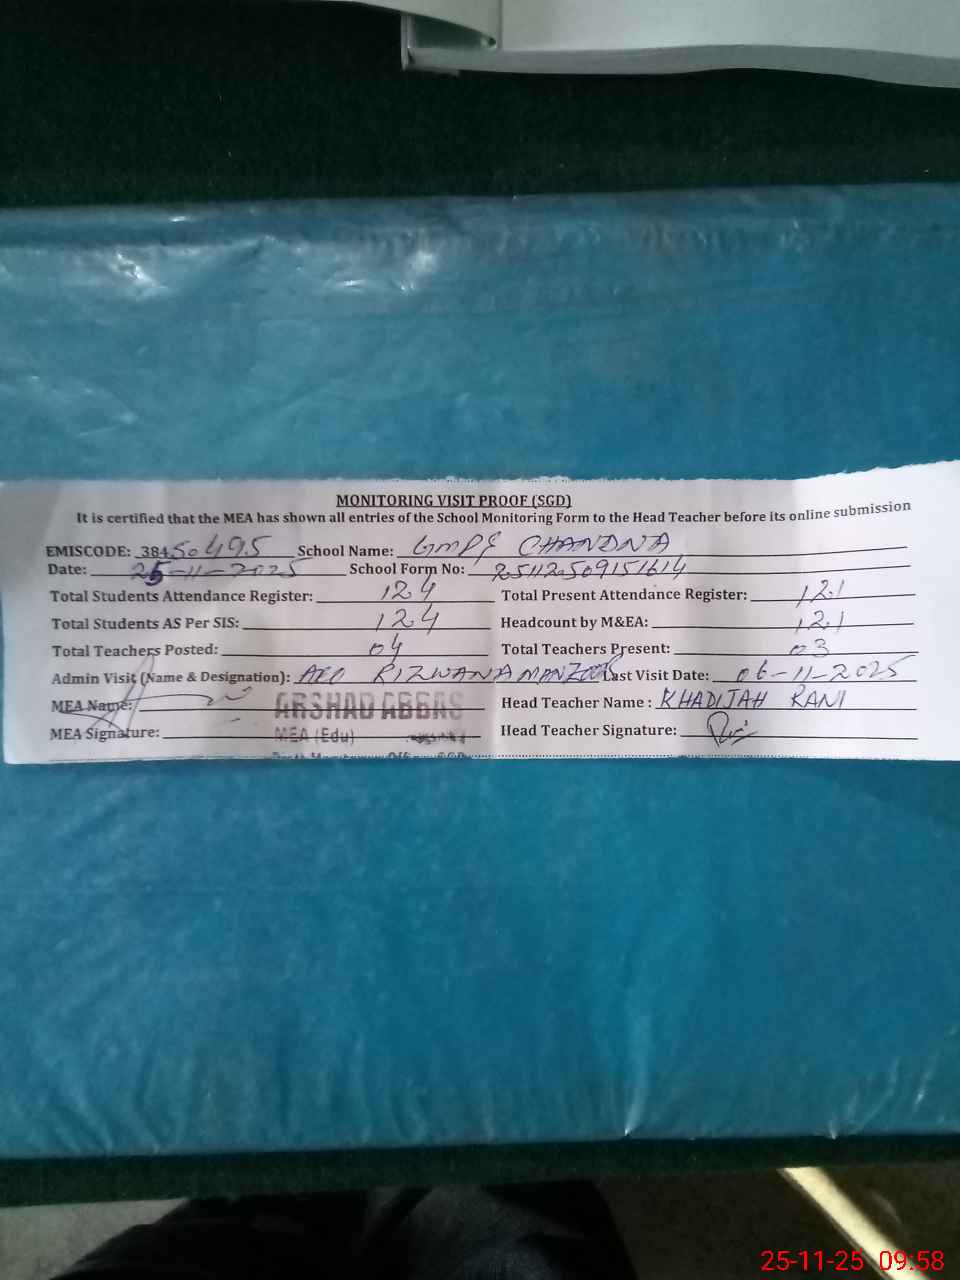 MONITORING VISIT PROOF (SGD)
It is certified that the MEA has shown all entries of the School Monitoring Form to the Head Teacher before its online submission
EMISCODE: 38450495 School Name: GMPS CHANDNA
Date: 25-11-2025 School Form No: 25112509151614
Total Students Attendance Register: 124 Total Present Attendance Register: 121
Total Students AS Per SIS: 124 Headcount by M&EA: 121
Total Teachers Posted: 04 Total Teachers Present: 03
Admin Visit (Name & Designation): AEO RIZWANA MANZOOR Last Visit Date: 06-11-2025
MEA Name: ARSHAD ABBAS Head Teacher Name : KHADIJAH RANI
MEA Signature: MEA (Edu) Head Teacher Signature:
25-11-25 09:58